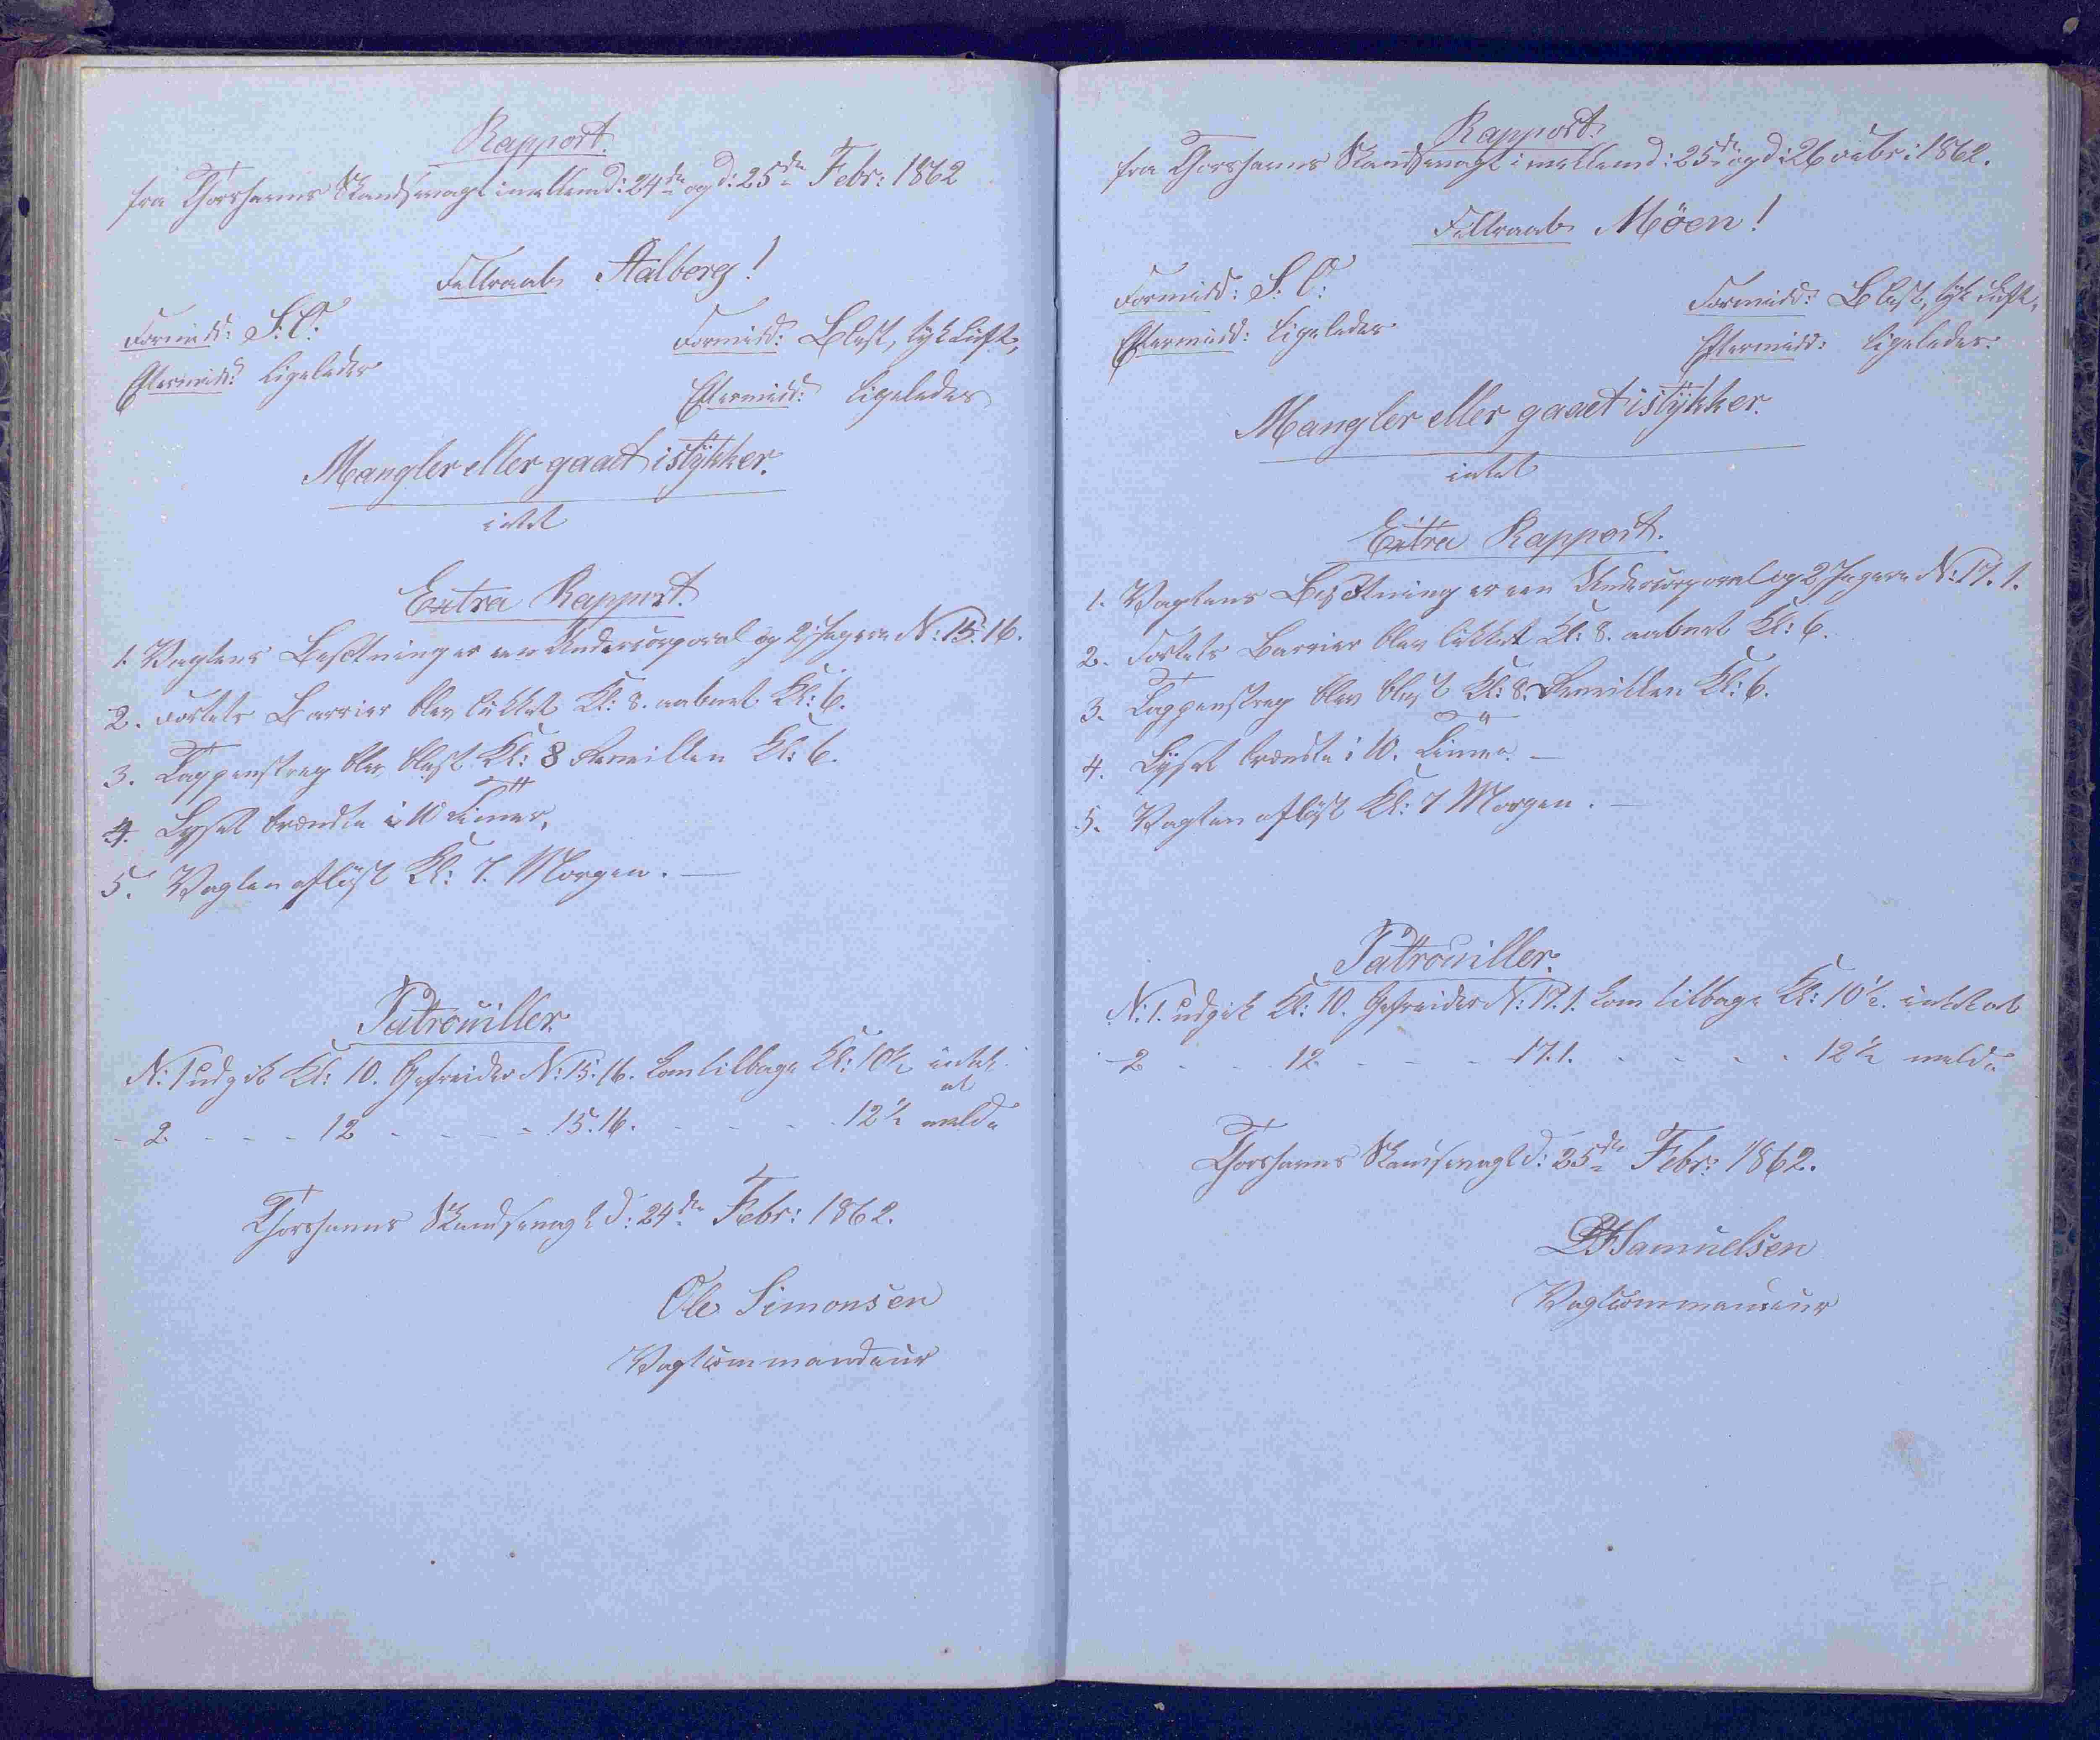 Rapport.
fra Thorshavns Skandsevagt imellem d: 24de og d: 25de Febr: 1862
Feltraab Aalborg!
Formidd: S.O:
Eftermidd: ligeledes
Formidd: Blæst, tyk Luft,
Eftermidd: ligeledes
Mangler eller gaaet istÿkker.
intet
Extra Rapport.
1. Vagtens Besætning er een Undercorporal og 2 Jægere N: 15. 16.
2. Fortets Barrier blev lukket Kl: 8. aabnet Kl: 6.
3. Tappenstreg blev blæst Kl: 8 Reveillen Kl: 6.
4. Lyset brændte i 10 Timer,
5. Vagten afløst Kl: 7. Morgen. —
Patrouiller.
N: 1 udgik Kl: 10. Gefreider N: 15. 16. kom tilbage Kl: 10½ intet at
- 2. - - - 12 - - - - 15. 16. - - - - 12½ melde
Thorshavns Skandsevagt d: 24de Febr: 1862.
Ole Simonsen
Vagtcommandeur
Rapport.
fra Thorshavns Skandsevagt imellem d: 25de og d: 26 Febr: 1862.
Feltraab Möen!
Formidd: S.O:
Eftermidd: ligeledes
Formidd: Blæst, tyk Luft,
Eftermidd: ligeledes.
Mangler eller gaaet istÿkker.
intet
Extra Rapport.
1. Vagtens Besætning er een Undercorporal og 2 Jægere N: 17. 1.
2. Fortets Barrier blev lukket Kl: 8. aabnet Kl: 6.
3. Tappenstreg blev blæst Kl: 8. Reveillen Kl: 6.
4. Lyset brændte i 10. Timer. —
5. Vagten afløst Kl: 7 Morgen. —
Patrouiller.
N: 1. udgik Kl: 10. Gefreider N: 17. 1. kom tilbage Kl: 10½. intet at
- 2 - - 12 - - - 17. 1. - - - - 12½ melde
Thorshavns Skandsevagt d: 25de Febr: 1862.
Samuelsen
Vagtcommandeur